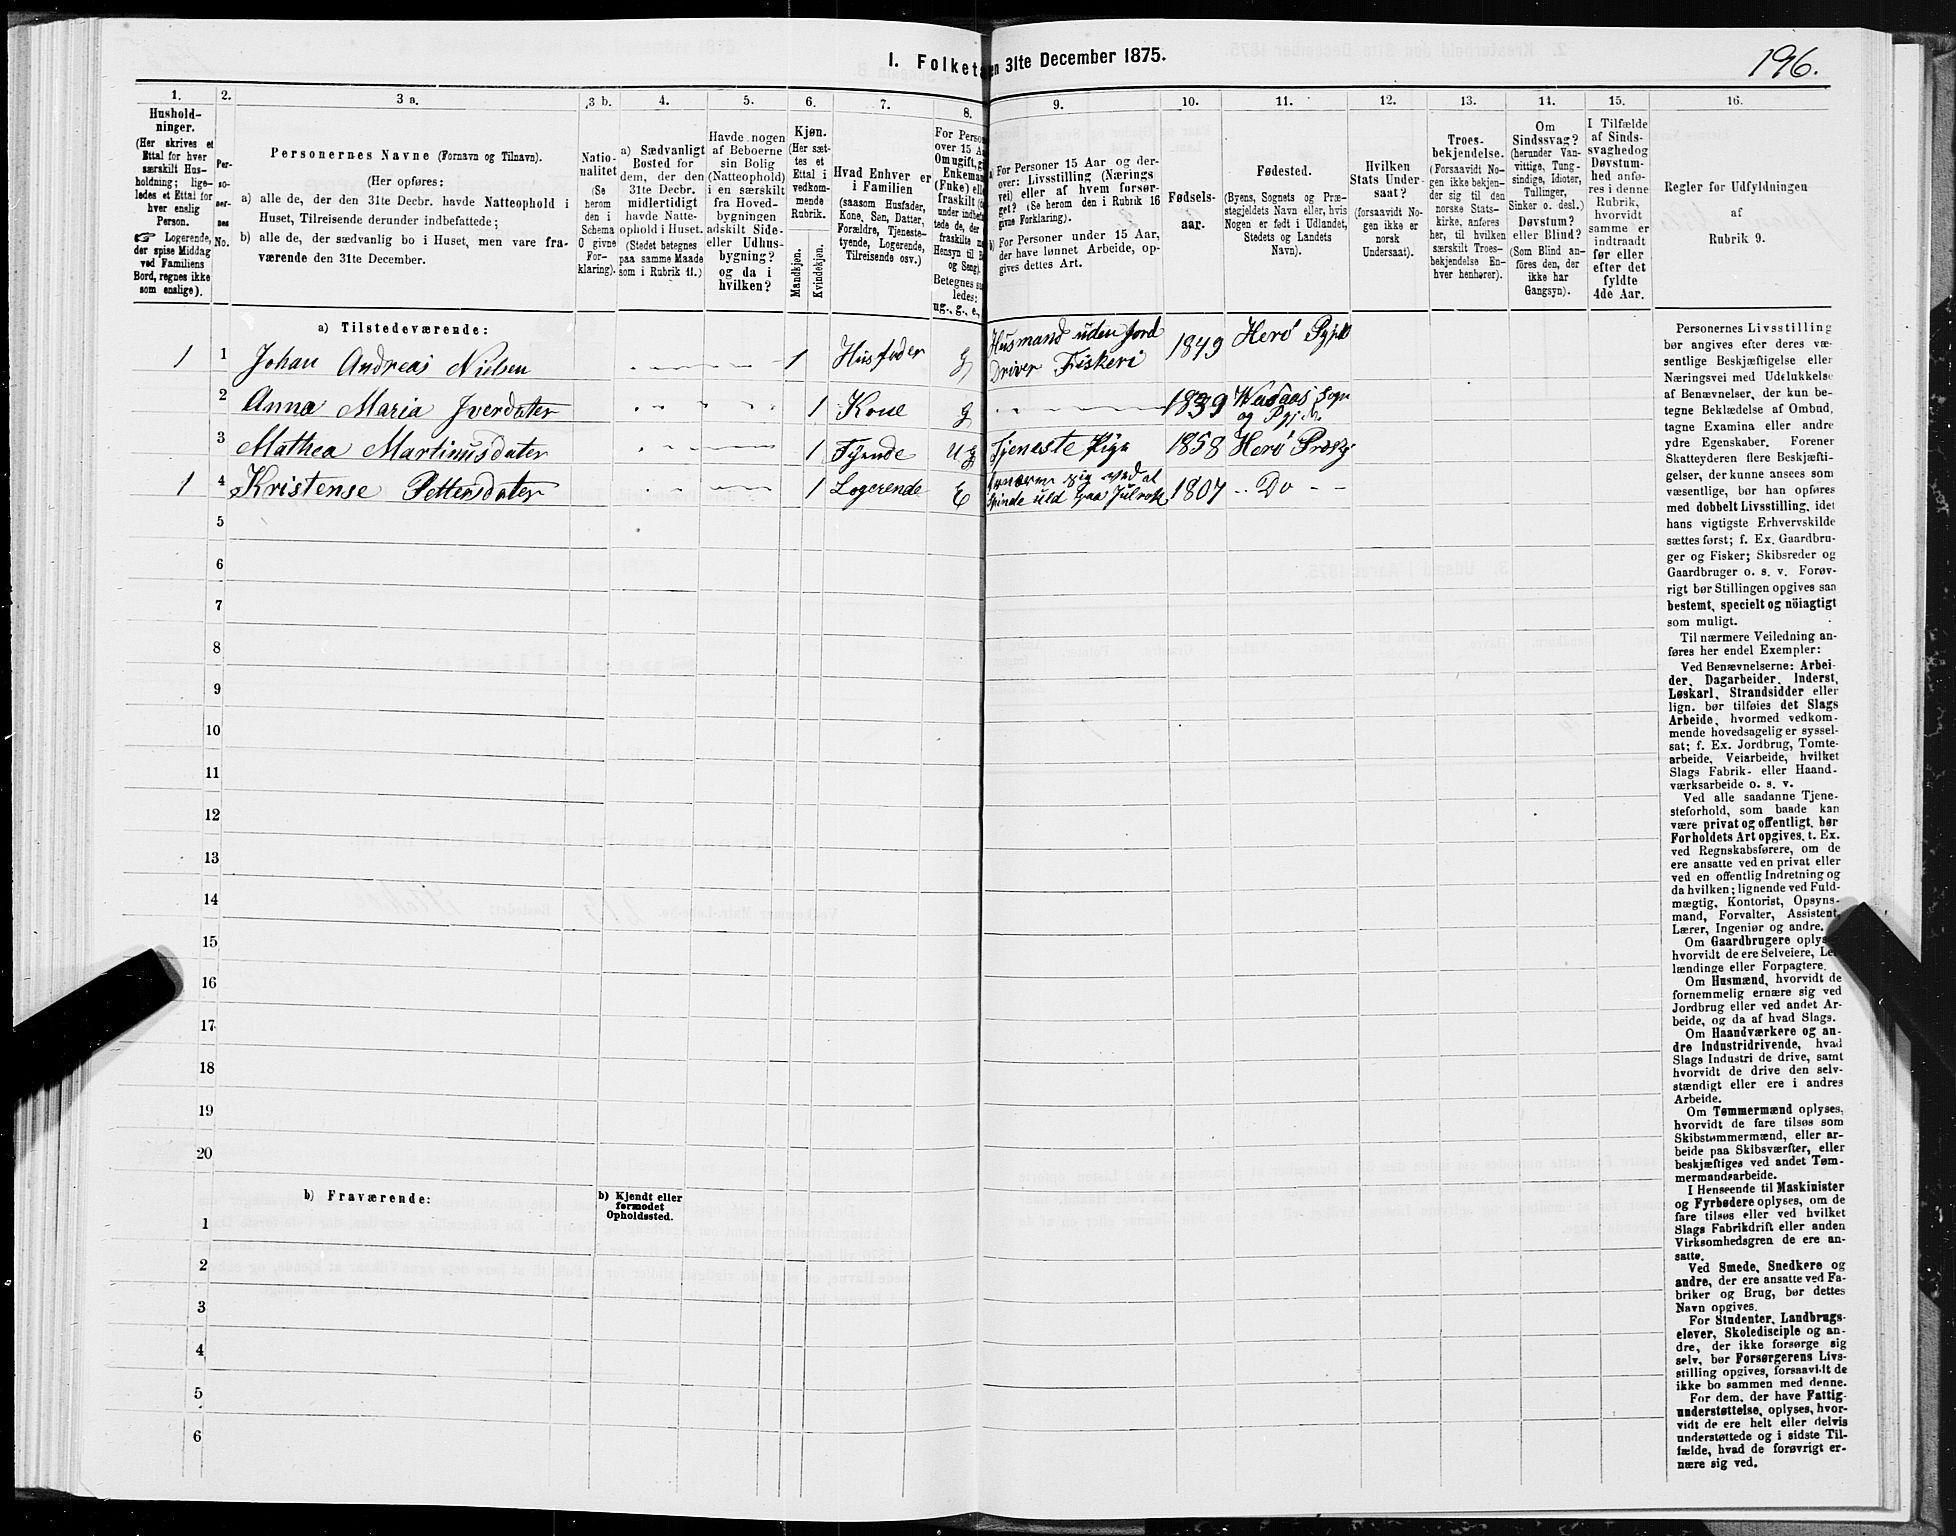 196.
I. Folketæ
en 31te December 1875.
1.
Hushold-
ninger.
(Her skrives et
Ettal for hver
særskilt Hus-
holdning; lige-
ledes et Ettal for
hver enslig
Person.
☞ Logerende,
der spise Middag
ved Familiens
Bord, regnes ikke
som enslige).
2.
Per-
so-
ner-
nes
No.
3 a.
Personernes Navne (Fornavn og Tilnavn).
(Her opføres:
a) alle de, der den 31te Decbr. havde Natteophold i
Huset, Tilreisende derunder indbefattede;
b) alle de, der sædvanlig bo i Huset, men vare fra-
værende den 31te December.
3 b.
Natio-
nalitet
(Se
herom
den i
Schema
O givne
For-
klaring).
4.
a) Sædvanligt
Bosted for
dem, der den
31te Decbr.
midlertidigt
havde Natte-
ophold i Huset.
(Stedet betegnes
paa samme Maade
som i Rubrik 11.)
5.
Havde nogen
af Beboerne
sin Bolig
(Natteophold)
i en særskilt
fra Hoved-
bygningen
adskilt Side-
eller Udhus-
bygning?
og da i
hvilken?
6.
Kjøn.
(Her sæt-
tes et
Ettal i
vedkom-
mende
Rubrik.
Mandkjøn.
Kvindekjøn.
7.
Hvad Enhver er
i Familien
(saasom Husfader,
Kone, Søn, Datter,
Forældre, Tjeneste-
tyende, Logerende,
Tilreisende osv.)
8.
For Perso
over 15 Aa
Om ugift, gi
Enkeman
(Enke) elle
fraskilt (d
under indbe
tede de, der
fraskilte m
Hensyn til B
og Seng).
Betegnes sa
ledes:
ug., g., e.,
9.
a) For Personer 15 Aar og der-
over: Livsstilling (Nærings
vei) eller af hvem forsør-
get? (Se herom den i Rubrik 16
givne Forklaring).
b) For Personer under 15 Aar,
der have lønnet Arbeide, op-
gives dettes Art.
10.
Fødsels-
aar.
11.
Fødested.
(Byens, Sognets og Præ-
stegjeldets Navn eller, hvis
Nogen er født i Udlandet,
Stedets og Landets
Navn).
12.
Hvilken
Stats Under-
saat?
(forsaavidt No-
gen ikke er
norsk
Undersaat).
13.
Troes-
bekjendelse.
(Forsaavidt No-
gen ikke bekjen-
der sig til den
norske Stats-
kirke, anføres
her, til hvilken
særskilt Troes-
bekjendelse En-
hver henhører).
14.
Om
Sindssvag?
(herunder Van-
vittige, Tung-
sindige, Idioter,
Tullinger,
Sinker o. desl.)
Døvstum?
eller Blind?
(Som Blind an-
føres den, der
ikke har
Gangsyn).
15.
I Tilfælde
af Sinds-
svaghed og
Døvstum-
hed anfø-
res i denne
Rubrik,
hvorvidt
samme er
indtraadt
før eller
efter det
fyldte
4de Aar.
16.
Regler for Udfyldningen
af
Rubrik 9.
a) Tilstedeværende:
1 1 Johan Andreas Nielsen 1 Husfader G Husmand uden Jord Driver Fiskeri 1849 Herø
2 Anna Maria Iverdater 1 Kone G 1839 Sogn og
3 Mathea Martinusdater 1 Tjende UG Tjeneste Pige 1858 Herø
1 4 Kristense Pettersdater 1 Logerende E sig ved at Spinde uld paa 1807 Do
5
6
7
8
9
10
11
12
13
14
15
16
17
18
19
20
b) Fraværende:
b) Kjendt eller
formodet
Opholdssted.
1
2
3
4
5
6
Personernes Livsstilling
bør angives efter deres væ-
sentlige Beskjæftigelse eller
Næringsvei med Udelukkelse
af Benævnelser, der kun be-
tegne Beklædelse af Ombud,
tagne Examina eller andre
ydre Egenskaber. Forener
Skatteyderen flere Beskjæfti-
gelser, der kunne ansees som
væsentlige, bør han opføres
med dobbelt Livsstilling, idet
hans vigtigste Erhvervskilde
sættes først; f. Ex. Gaardbru-
ger og Fisker; Skibsreder og
Gaardbruger o. s. v. Forøv-
rigt bør Stillingen opgives saa
bestemt, specielt og nöiagtigt
som muligt.
Til nærmere Veiledning an-
føres her endel Exempler:
Ved Benævnelserne: Arbei-
der, Dagarbeider, Inderst,
Løskarl, Strandsidder eller
lign. bør tilføies det Slags
Arbeide, hvormed vedkom-
mende hovedsagelig er syssel-
sat; f. Ex. Jordbrug, Tomte-
arbeide, Veiarbeide, hvilket
Slags Fabrik- eller Haand-
værksarbeide o. s. v.
Ved alle saadanne Tjene-
steforhold, som baade kan
være privat og offentligt, bør
Forholdets Art opgives, t. Ex.
ved Regnskabsførere, om de
ere ansatte ved en privat eller
ved en offentlig Indretning og
da hvilken; lignende ved Fuld-
mægtig, Kontorist, Opsyns-
mand, Forvalter, Assistent,
Lærer, Ingeniør og andre.
Om Gaardbrugere oplyse
hvorvidt de ere Selveiere, Lei
lændinge eller Forpagtere.
Om Husmænd, hvorvidt de
fornemmelig ernære sig ved
Jordbrug eller ved andet Ar-
beide, og da af hvad Slags.
Om Haandværkere og an-
dre Industridrivende, hvad
Slags Industri de drive, samt
hvorvidt de drive den selv-
stændigt eller ere i andres
Arbeide.
Om Tømmermænd oplyses,
hvorvidt de fare tilsøs som
Skibstømmermænd, eller ar-
beide paa Skibsværfter, eller
beskjæftiges ved andet Tøm-
mermandsarbeide.
I Henseende til Maskinister
og Fyrbødere oplyses, om de
fare tilsøs eller ved hvilket
Slags Fabrikdrift eller anden
Virksomhedsgren de ere an-
satte.
Ved Smede, Snedkere og
andre, der ere ansatte ved Fa-
briker og Brug, bør dettes
Navn opgives.
For Studenter, Landbrugs-
elever, Skoledisciple og an-
dre, der ikke forsørge sig
selv, bør Forsørgerens Livs-
stilling opgives, forsaavidt de
ikke bo sammen med denne.
For dem, der have Fattig-
understøttelse, oplyses, hvor-
vidt de ere helt eller delvis
understøttede og i sidste Til-
fælde, hvad de forøvrigt er-
nære sig ved.